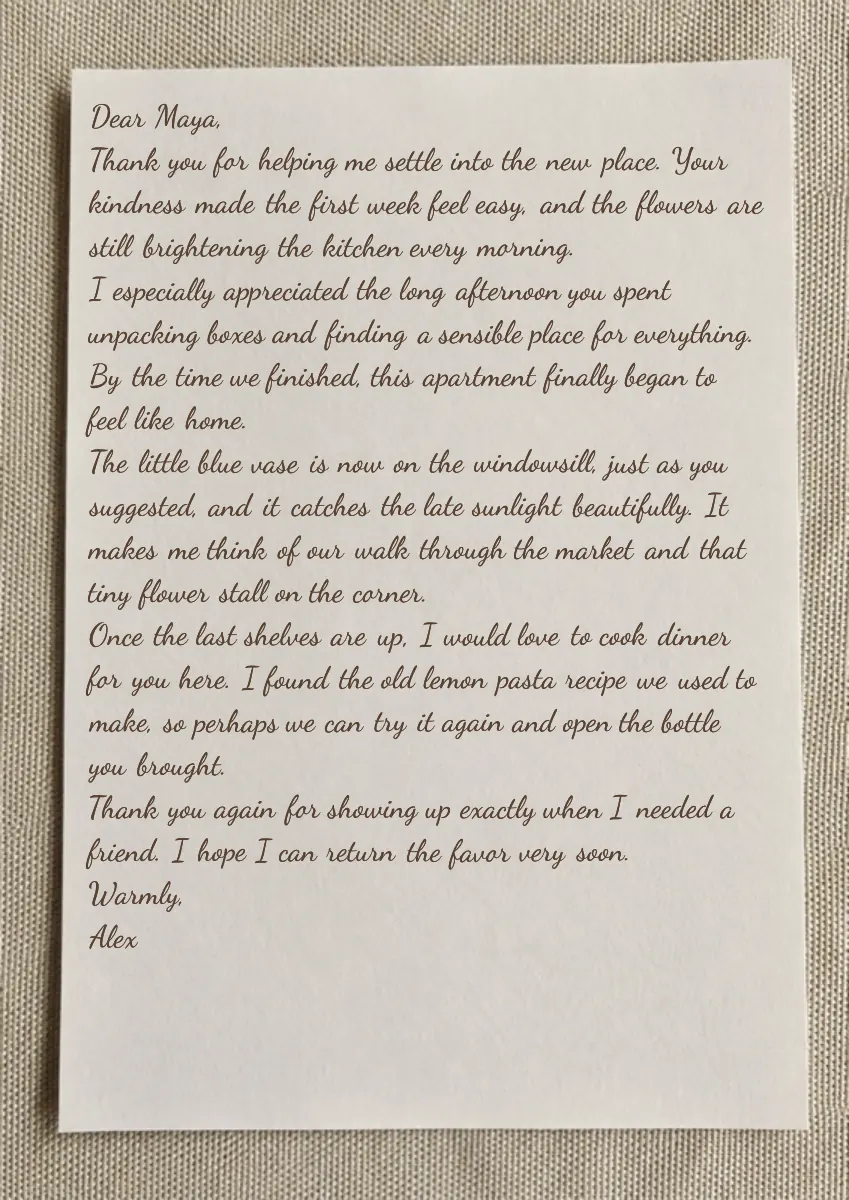 Dear Maya,
Thank you for helping me settle into the new place. Your
kindness made the first week feel easy, and the flowers are
still brightening the kitchen every morning.
I especially appreciated the long afternoon you spent
unpacking boxes and finding a sensible place for everything.
By the time we finished, this apartment finally began to
feel like home.
The little blue vase is now on the windowsill, just as you
suggested, and it catches the late sunlight beautifully. It
makes me think of our walk through the market and that
tiny flower stall on the corner.
Once the last shelves are up, I would love to cook dinner
for you here. I found the old lemon pasta recipe we used to
make, so perhaps we can try it again and open the bottle
you brought.
Thank you again for showing up exactly when I needed a
friend. I hope I can return the favor very soon.
Warmly,
Alex